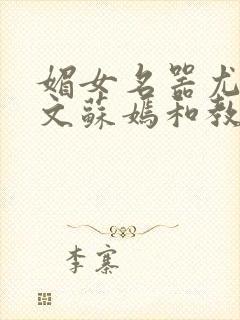 媚女名器尤
文蘇媽和教
李寨